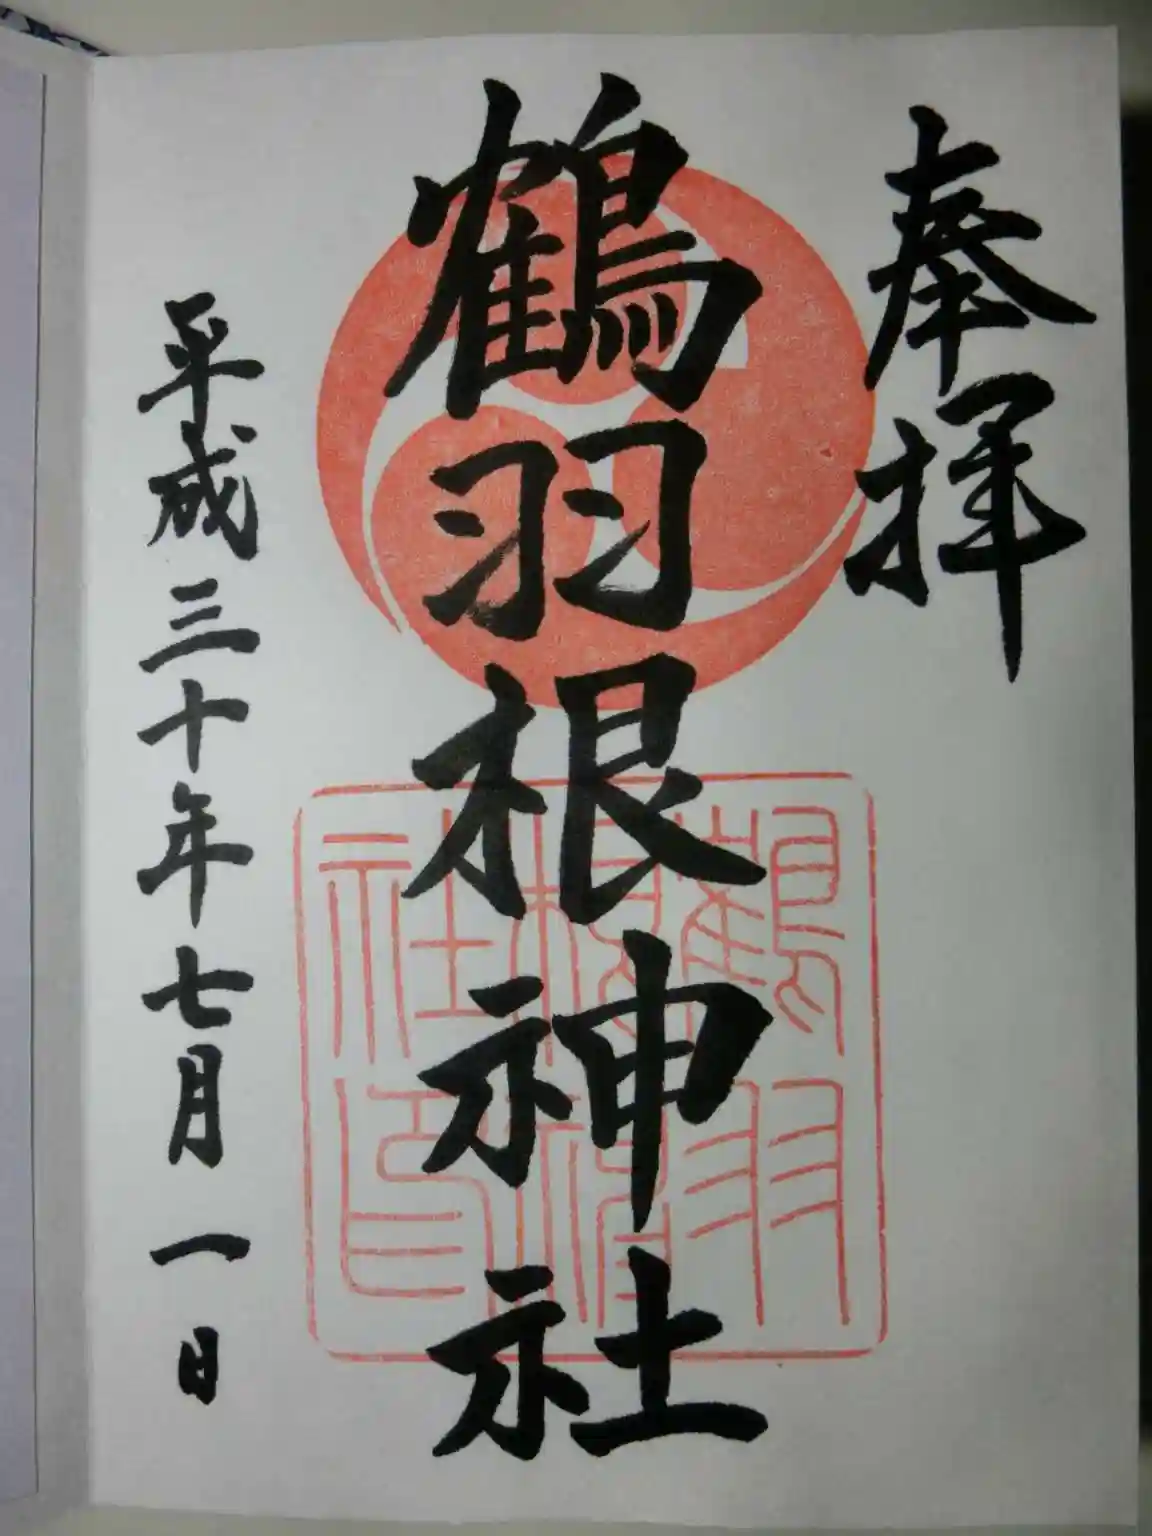 奉拝
鶴羽根神社
平成三十年七月一日
鶴羽
根神
社印